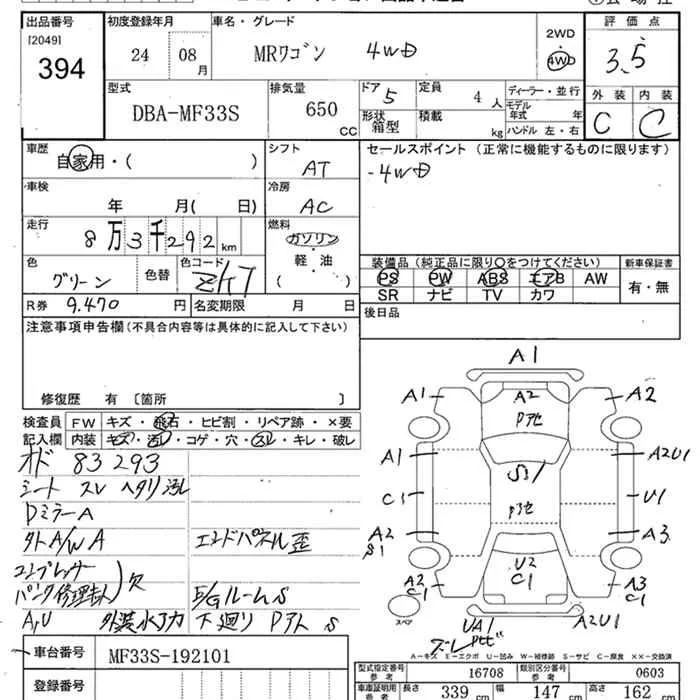 出品番号
[2049]
394
初度登録年月
24 08 月
車名・グレード
MRワゴン 4WD
2WD
4WD
評価点
3.5
外装 内装
C C
型式
DBA-MF33S
排気量
650 CC
ドア 5
形状
箱型
定員
4 人
積載
kg
ディーラー・並行
モデル
年式 年
ハンドル 左・右
車歴
自家用・( )
シフト
AT
セールスポイント (正常に機能するものに限ります)
-4WD
車検
年 月( 日)
冷房
AC
走行
8万3千292km
燃料
ガソリン
軽・油
( )
色
グリーン
色替
色コード
ZKT
装備品 (純正品に限り〇をつけてください)
PS PW ABS エアB AW
SR ナビ TV カワ
新車保証書
有・無
R券 9.470 円
名変期限 月 日
後日品
注意事項申告欄 (不具合内容等は具体的に記入して下さい)
修復歴 有 〔箇所 〕
検査員
記入欄
FW キズ・飛石・ヒビ割・リペア跡・×要
内装 キズ・汚レ・コゲ・穴・スレ・キレ・破レ
オド 83293
シート スレ ヘタリ 汚レ
DミラーA
外A/W A
エンドパネル歪
コンプレッサー
パンク修理剤 欠
E/Gルーム S
A,U 外装水アカ 下廻り Pアト S
A1
A1 A2 A2
P他
A1 A2U1
S1
C1 U1
P他
A2 A3
S1
U2
C1
A2 A3
C1 C1
スペア
UA1 A2U1
ズレ
A-キズ E-エクボ U-凹み W-補修跡 S-サビ C-腐食 XX-交換済
車台番号
MF33S-192101
登録番号
型式指定番号
参考
16708
類別区分番号
参考
0603
車庫証明用
参考
長さ 339 cm 幅 147 cm 高さ 162 cm